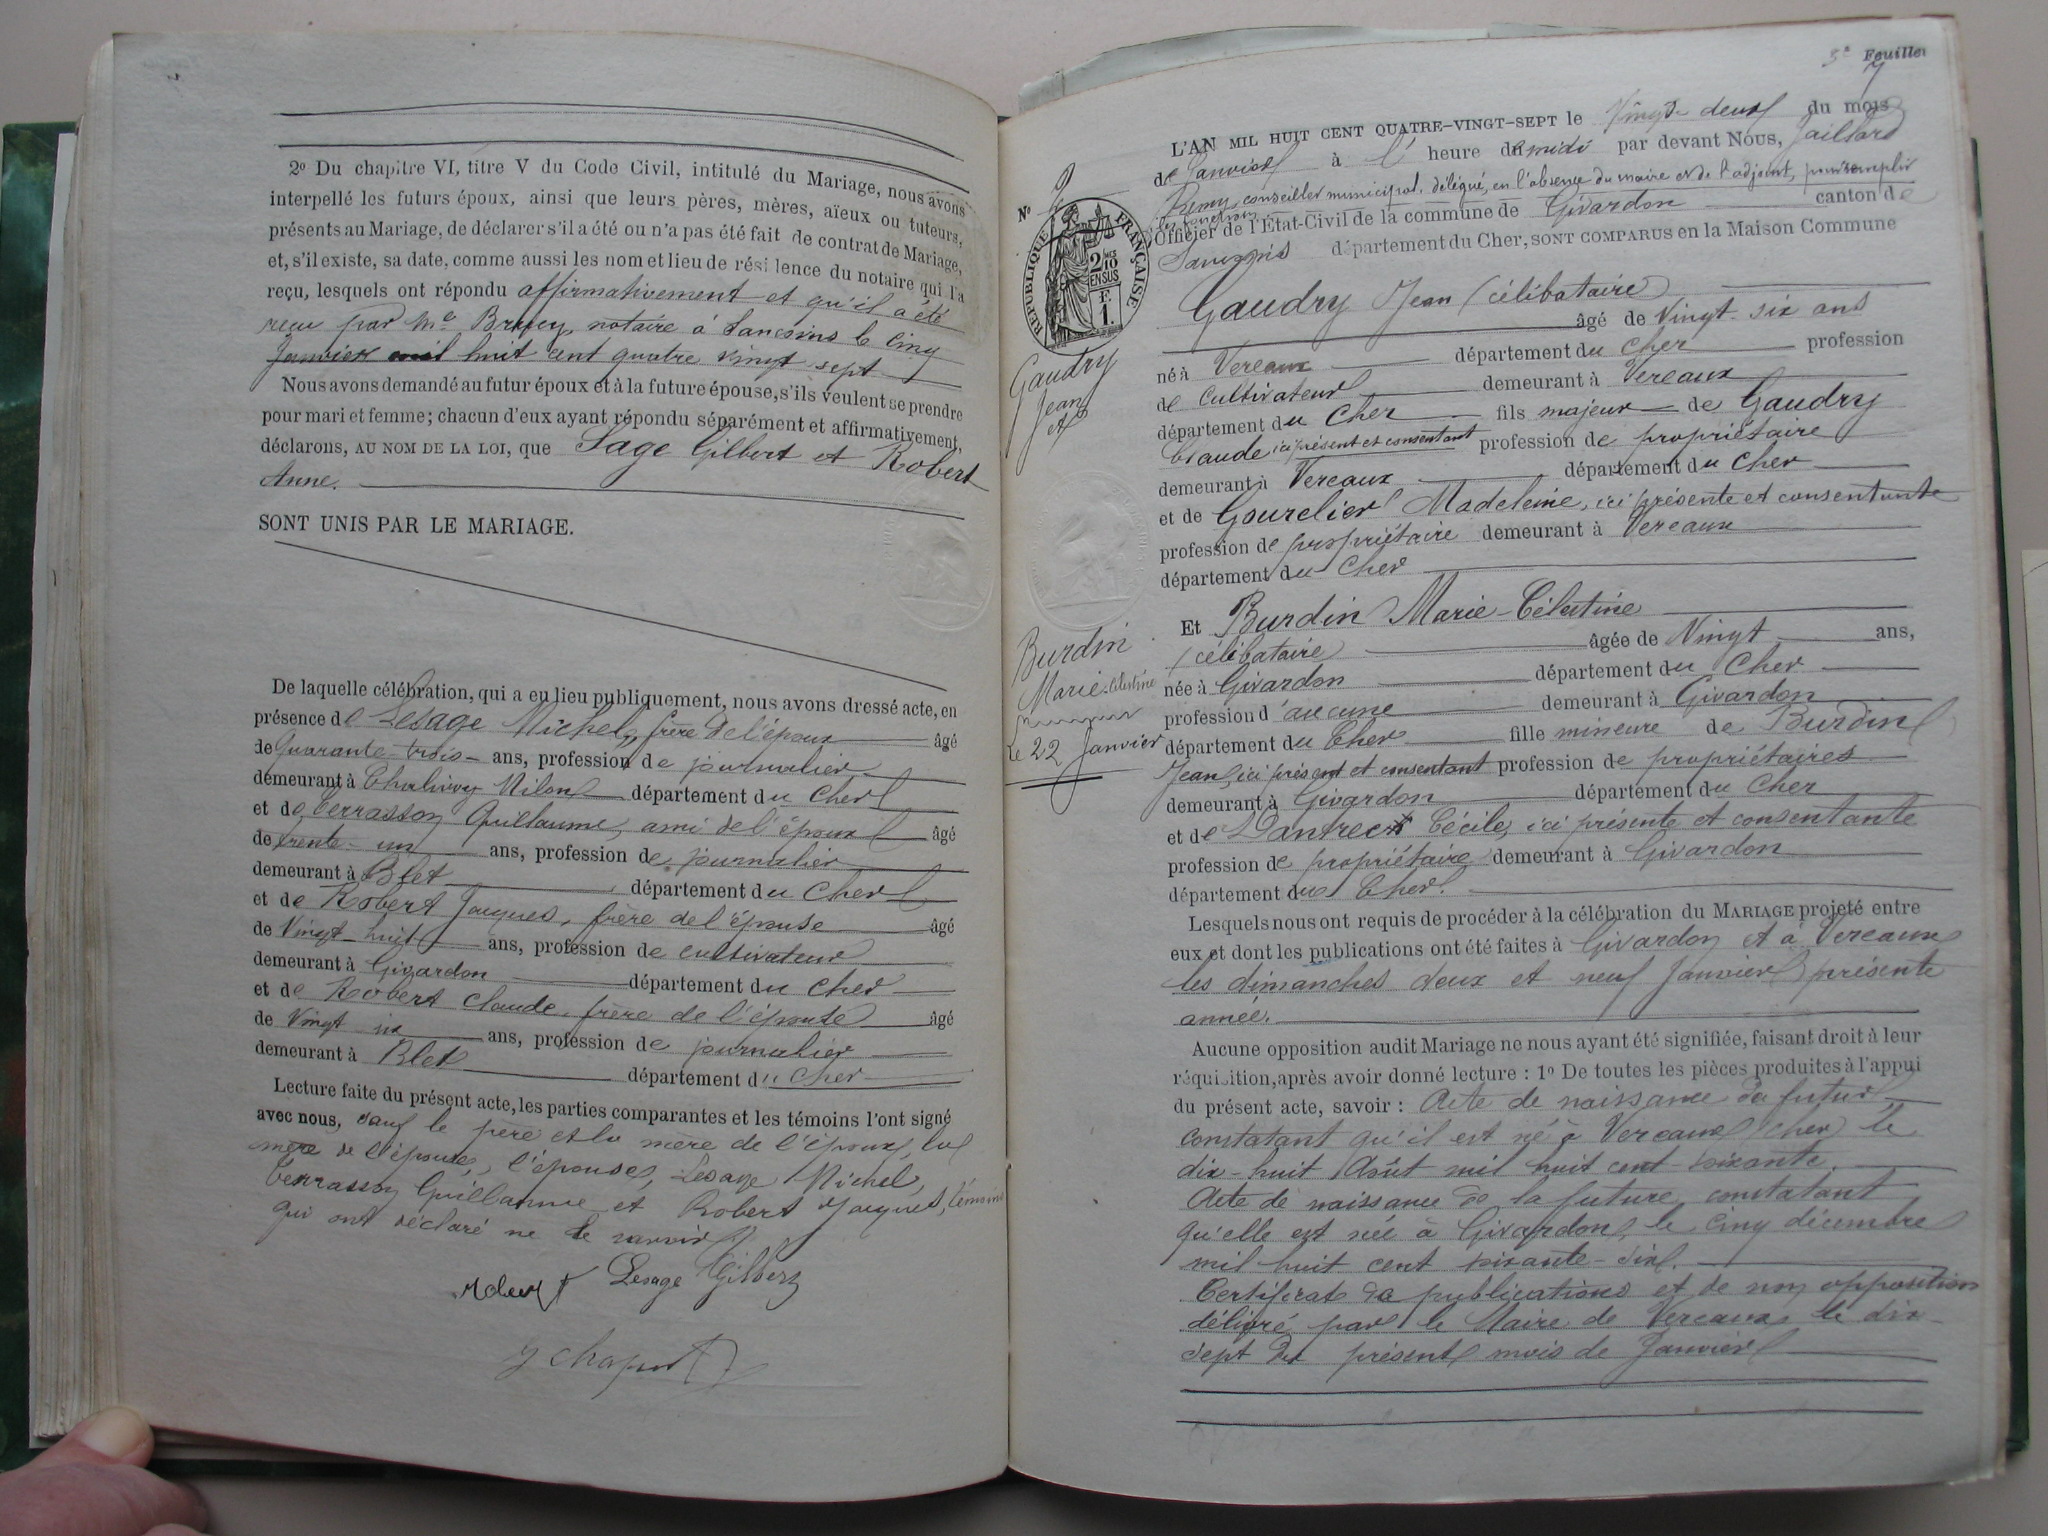 2º Du chapitre VI, titre V du Code Civil, intitulé du Mariage, nous avons
interpellé les futurs époux, ainsi que leurs pères, mères, aïeux ou tuteurs,
présents au Mariage, de déclarer s'il a été ou n'a pas été fait de contrat de Mariage,
et, s'il existe, sa date, comme aussi les nom et lieu de résidence du notaire qui l'a
reçu, lesquels ont répondu affirmativement et qu'il a été
reçu par Me notaire à Sancoins le cinq
Janvier mil huit cent quatre vingt sept
Nous avons demandé au futur époux et à la future épouse, s'ils veulent se prendre
pour mari et femme; chacun d'eux ayant répondu séparément et affirmativement,
déclarons, AU NOM DE LA LOI, que Sage Gilbert et Robert
Anne.
SONT UNIS PAR LE MARIAGE.
De laquelle célébration, qui a eu lieu publiquement, nous avons dressé acte, en
présence de Lesage Michel, frère de l'époux âgé
de Quarante-trois ans, profession de journalier
demeurant à Charlivoy Milon département du Cher
et de Terrasson Guillaume, ami de l'époux âgé
de trente-un ans, profession de journalier
demeurant à Blet département du Cher
et de Robert Jacques, frère de l'épouse âgé
de Vingt-huit ans, profession de cultivateur
demeurant à Givardon département du Cher
et de Robert Claude, frère de l'épouse âgé
de Vingt six ans, profession de journalier
demeurant à Blet département du Cher
Lecture faite du présent acte, les parties comparantes et les témoins l'ont signé
avec nous, sauf le père et la mère de l'époux, la
mère de l'épouse, l'épouse, Lesage Michel,
Terrasson Guillaume et Robert Jacques, témoins
qui ont déclaré ne le savoir
Robert Lesage Gilbert
3e Feuillet
7
L'AN MIL HUIT CENT QUATRE-VINGT-SEPT le Vingt-deux du mois
de Janvier à l' heure de midi par devant Nous, Jaillard
Remy, conseiller municipal, délégué, en l'absence du maire et de l'adjoint, pour remplir
les fonctions
Officier de l'État-Civil de la commune de Givardon canton de
Sancoins département du Cher, SONT COMPARUS en la Maison Commune
Nº 2
RÉPUBLIQUE FRANÇAISE
2/10 EN SUS
F. 1.
Gaudry
Jean
et
Burdin
Marie-Célestine
Le 22 Janvier
Gaudry Jean (célibataire)
âgé de Vingt-six ans
né à Vereaux département du Cher profession
de cultivateur demeurant à Vereaux
département du Cher fils majeur de Gaudry
Claude ici présent et consentant profession de propriétaire
demeurant à Vereaux département du Cher
et de Gourelier Madeleine, ici présente et consentante
profession de propriétaire demeurant à Vereaux
département du Cher
Et Burdin Marie-Célestine
(célibataire) âgée de Vingt ans,
née à Givardon département du Cher
profession d'aucune demeurant à Givardon
département du Cher fille mineure de Burdin
Jean, ici présent et consentant profession de propriétaires
demeurant à Givardon département du Cher
et de Cécile, ici présente et consentante
profession de propriétaire demeurant à Givardon
département du Cher.
Lesquels nous ont requis de procéder à la célébration du MARIAGE projeté entre
eux et dont les publications ont été faites à Givardon et à Vereaux
les dimanches deux et neuf Janvier présente
année.
Aucune opposition audit Mariage ne nous ayant été signifiée, faisant droit à leur
réquisition, après avoir donné lecture : 1º De toutes les pièces produites à l'appui
du présent acte, savoir : Acte de naissance du futur,
constatant qu'il est né à Vereaux (Cher) le
dix-huit Août mil huit cent soixante.
Acte de naissance de la future, constatant
qu'elle est née à Givardon, le cinq décembre
mil huit cent soixante-six.
Certificat de publications et de non opposition
délivré par le Maire de Vereaux le dix-
sept du présent mois de Janvier